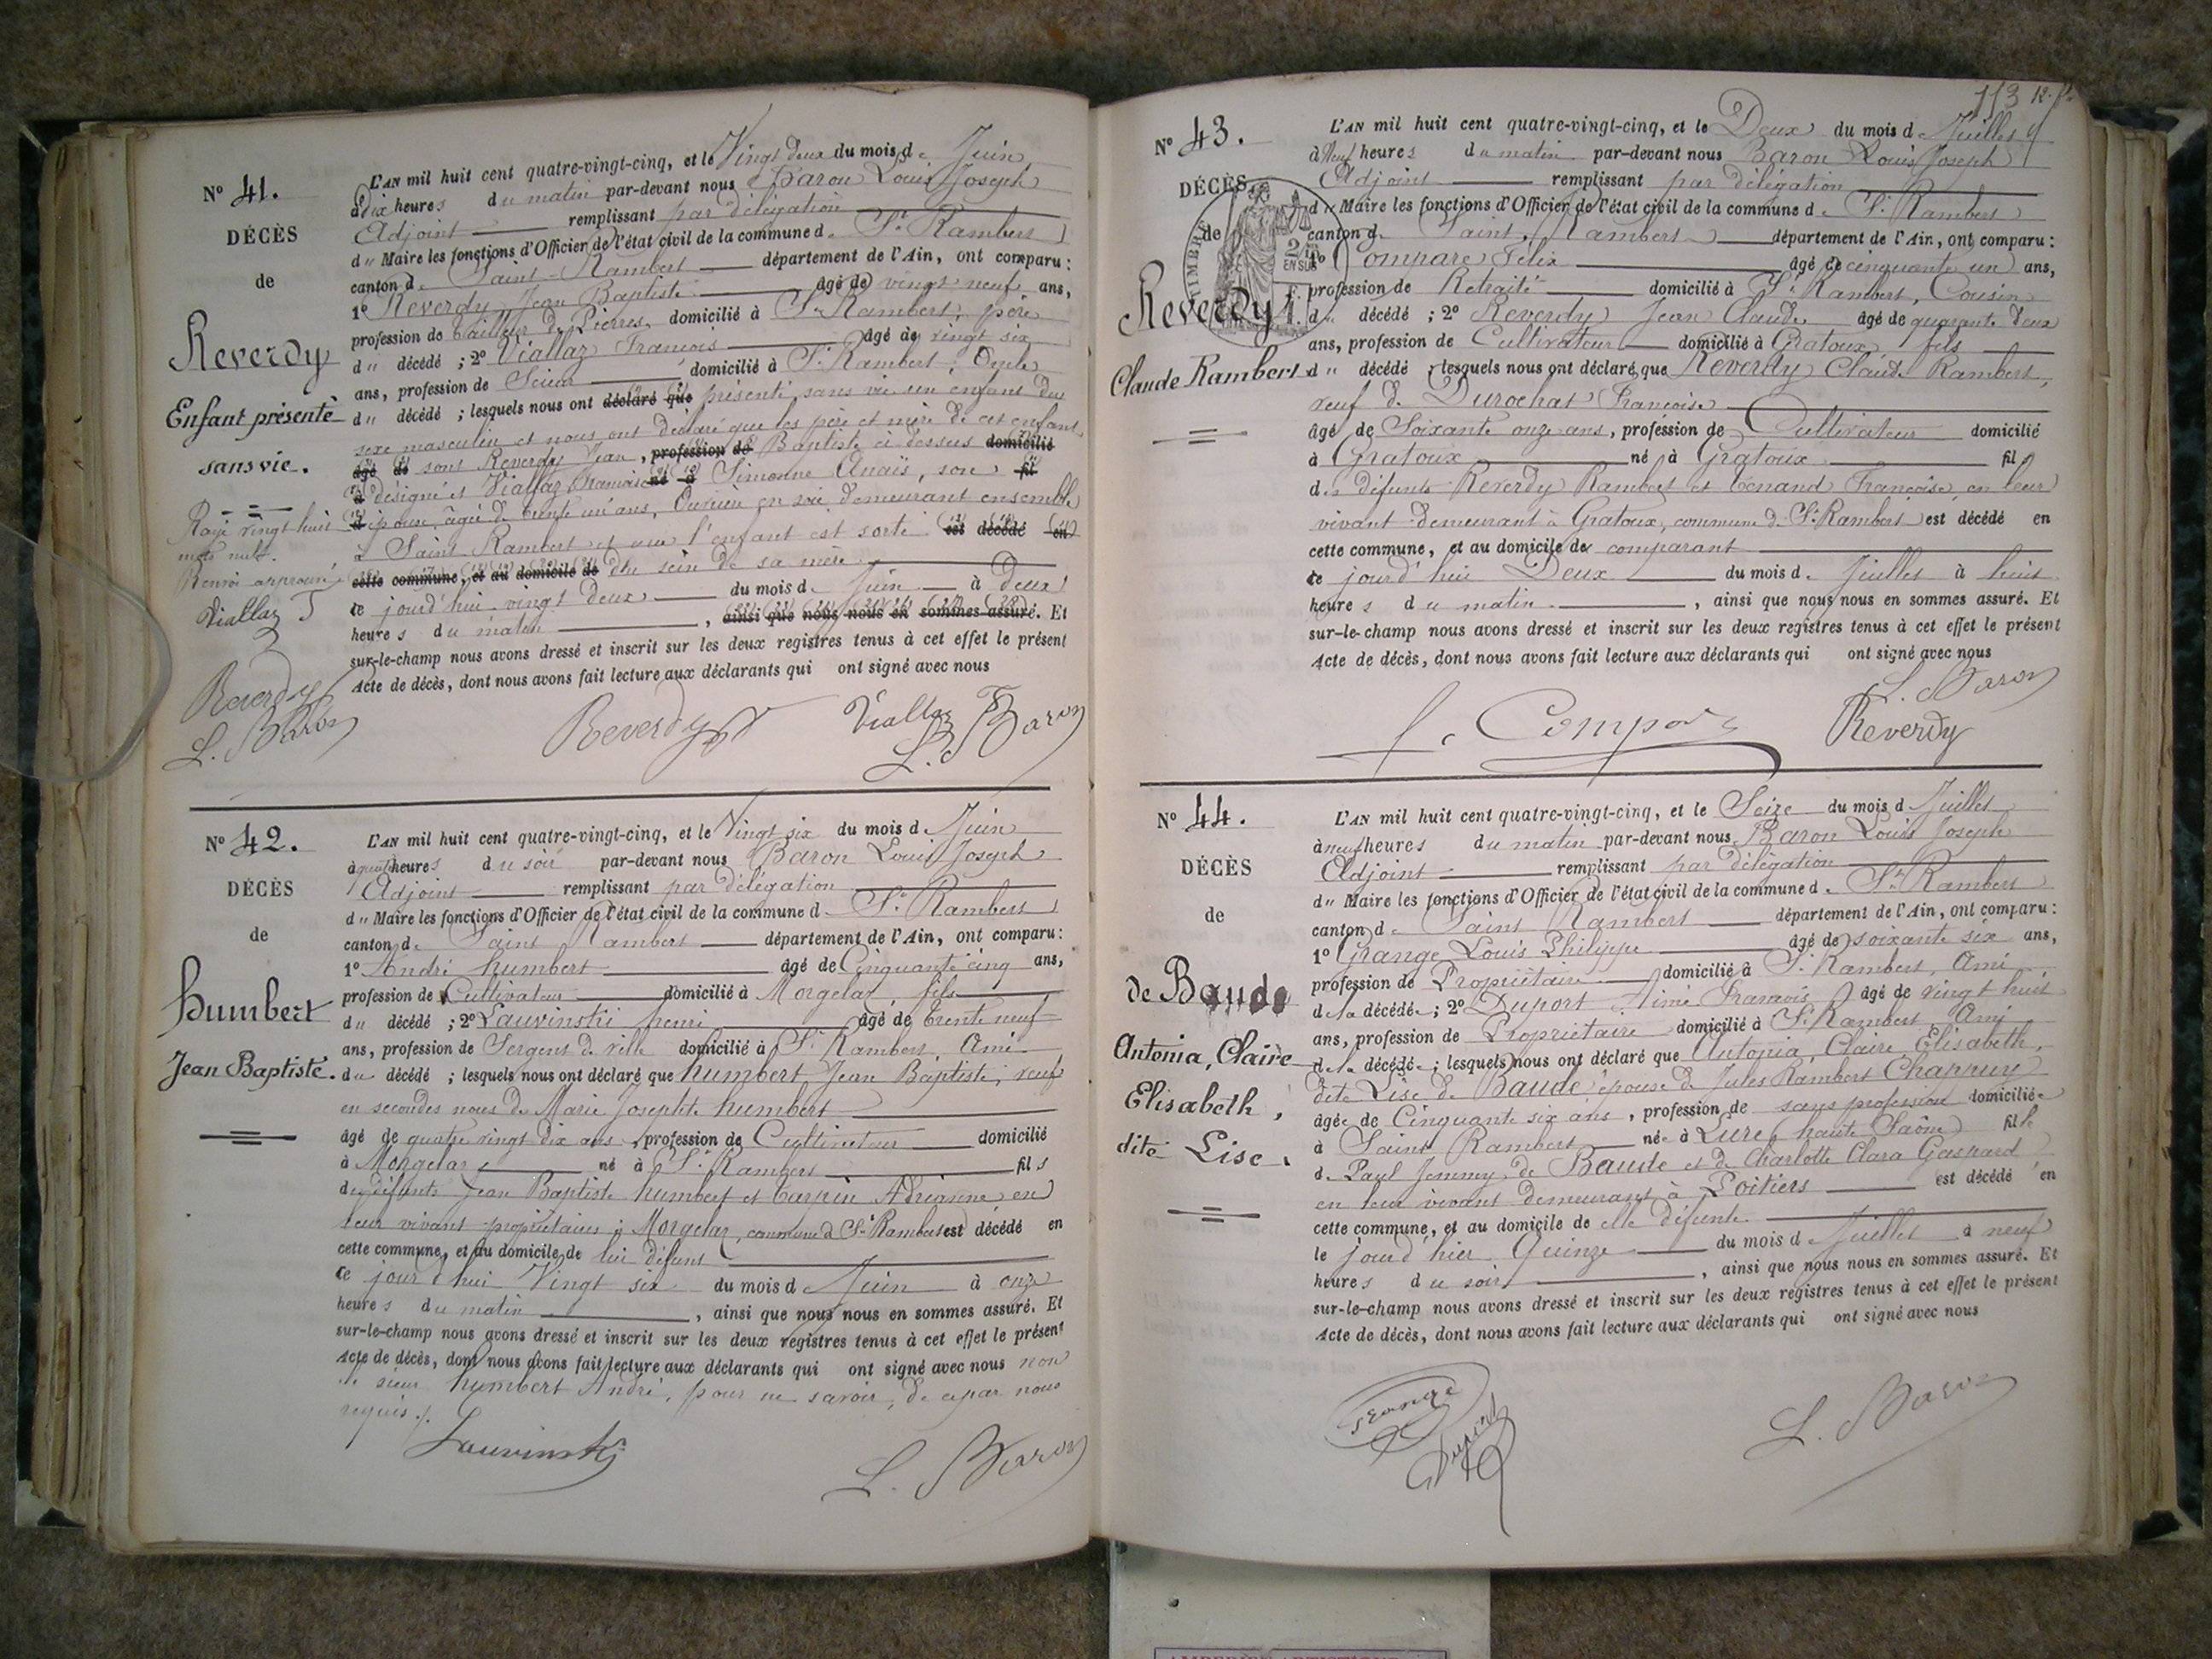 N° 41.
DÉCÈS
de
Reverdy
Enfant présenté
sans vie.
Rayé vingt huit
mots nuls.
Renvoi approuvé
Viallaz F
Reverdy
L. Baron
L'AN mil huit cent quatre-vingt-cinq, et le Vingt deux du mois de Juin
à dix heures du matin par-devant nous Baron Louis Joseph
Adjoint remplissant par délégation
du Maire les fonctions d'Officier de l'état civil de la commune de St Rambert
canton de Saint-Rambert département de l'Ain, ont comparu :
1° Reverdy Jean Baptiste âgé de vingt neuf ans,
profession de tailleur de Pierres domicilié à St Rambert, père
du décédé ; 2° Viallaz François âgé de vingt six
ans, profession de Scieur domicilié à St Rambert, Oncle
du décédé ; lesquels nous ont déclaré que présenté sans vie un enfant du
sexe masculin et nous ont déclaré que les père et mère de cet enfant
âgé de sont Reverdy Jean, profession de Baptiste ci dessus domicilié
à désigné et Viallaz né à Simonne Anaïs, son fil
d épouse, âgée de trente un ans, Ouvrière en soie demeurant ensemble
à Saint Rambert et que l'enfant est sorti est décédé en
cette commune, et au domicile de du sein de sa mère
ce jourd'hui vingt deux du mois de Juin à deux
heures du matin, ainsi que nous nous en sommes assuré. Et
sur-le-champ nous avons dressé et inscrit sur les deux registres tenus à cet effet le présent
Acte de décès, dont nous avons fait lecture aux déclarants qui ont signé avec nous
Reverdy Viallaz F
L. Baron
N° 42.
DÉCÈS
de
humbert
Jean Baptiste.
L'AN mil huit cent quatre-vingt-cinq, et le Vingt six du mois de Juin
à heures du soir par-devant nous Baron Louis Joseph
Adjoint remplissant par délégation
du Maire les fonctions d'Officier de l'état civil de la commune d St Rambert
canton de Saint Rambert département de l'Ain, ont comparu :
1° André humbert âgé de Cinquante cinq ans,
profession de Cultivateur domicilié à Morgelas, fils
du décédé ; 2° Lauvinski henri âgé de trente neuf
ans, profession de Sergent de ville domicilié à St Rambert, Ami
du décédé ; lesquels nous ont déclaré que humbert Jean Baptiste, veuf
en secondes noces de Marie Josephte humbert
âgé de quatre vingt dix ans, profession de Cultivateur domicilié
à Morgelas né à St Rambert fils
des défunts Jean Baptiste humbert et Carpin Adrianne en
leur vivant propriétaires à Morgelas, commune de St Rambert est décédé en
cette commune, et au domicile de lui défunt
ce jourd'hui Vingt six du mois d Juin à onze
heures du matin, ainsi que nous nous en sommes assuré. Et
sur-le-champ nous avons dressé et inscrit sur les deux registres tenus à cet effet le présent
Acte de décès, dont nous avons fait lecture aux déclarants qui ont signé avec nous non
le sieur humbert André, pour ne savoir, de ce par nous
requis ./.
Lauvinski
L. Baron
113
N° 43.
DÉCÈS
de
Reverdy
Claude Rambert
L'AN mil huit cent quatre-vingt-cinq, et le Deux du mois de Juillet
à Neuf heures du matin par-devant nous Baron Louis Joseph
Adjoint remplissant par délégation
du Maire les fonctions d'Officier de l'état civil de la commune de St Rambert
canton de Saint Rambert département de l'Ain, ont comparu :
1° Compare Félix âgé de cinquante un ans,
profession de Retraité domicilié à St Rambert, Cousin
du décédé ; 2° Reverdy Jean Claude âgé de quarante deux
ans, profession de Cultivateur domicilié à Gratoux, fils
du décédé, lesquels nous ont déclaré que Reverdy Claude Rambert,
veuf de Durochat Françoise
âgé de Soixante onze ans, profession de Cultivateur domicilié
à Gratoux né à Gratoux fils
des défunts Reverdy Rambert et Tenand Françoise, en leur
vivant demeurant à Gratoux, commune de St Rambert est décédé en
cette commune, et au domicile de comparant
ce jourd'hui Deux du mois de Juillet à huit
heures du matin, ainsi que nous nous en sommes assuré. Et
sur-le-champ nous avons dressé et inscrit sur les deux registres tenus à cet effet le présent
Acte de décès, dont nous avons fait lecture aux déclarants qui ont signé avec nous
L. Baron
f. Compare Reverdy
N° 44.
DÉCÈS
de
de Baude
Antonia, Claire
Elisabeth,
dite Lise.
L'AN mil huit cent quatre-vingt-cinq, et le Seize du mois d Juillet
à neuf heures du matin par-devant nous Baron Louis Joseph
Adjoint remplissant par délégation
du Maire les fonctions d'Officier de l'état civil de la commune de St Rambert
canton de Saint Rambert département de l'Ain, ont comparu :
1° Grange Louis Philippe âgé de soixante six ans,
profession de Propriétaire domicilié à St Rambert, Ami
de la décédée ; 2° Duport Aimé François âgé de vingt huit
ans, profession de Propriétaire domicilié à St Rambert, Ami
de la décédée ; lesquels nous ont déclaré que Antonia, Claire, Elisabeth,
dite Lise de Baude épouse de Jules Rambert Chappuy
âgée de Cinquante six ans, profession de sans profession domiciliée
à Saint Rambert née à Lure (haute Saône) fille
de Paul Jemmy de Baude et de Charlotte Clara Gaspard
en leur vivant demeurant à Poitiers est décédé en
cette commune, et au domicile de elle défunte
le jour d'hier Quinze du mois d Juillet à neuf
heures du soir, ainsi que nous nous en sommes assuré. Et
sur-le-champ nous avons dressé et inscrit sur les deux registres tenus à cet effet le présent
Acte de décès, dont nous avons fait lecture aux déclarants qui ont signé avec nous
Grange
Duport
L. Baron